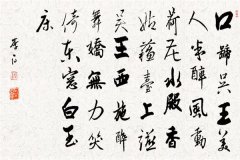 口號吳王美
人半醉風動
荷花水殿香
姑蘇臺上宴
吳王西施醉
舞嬌無力笑
倚東窗白玉
床